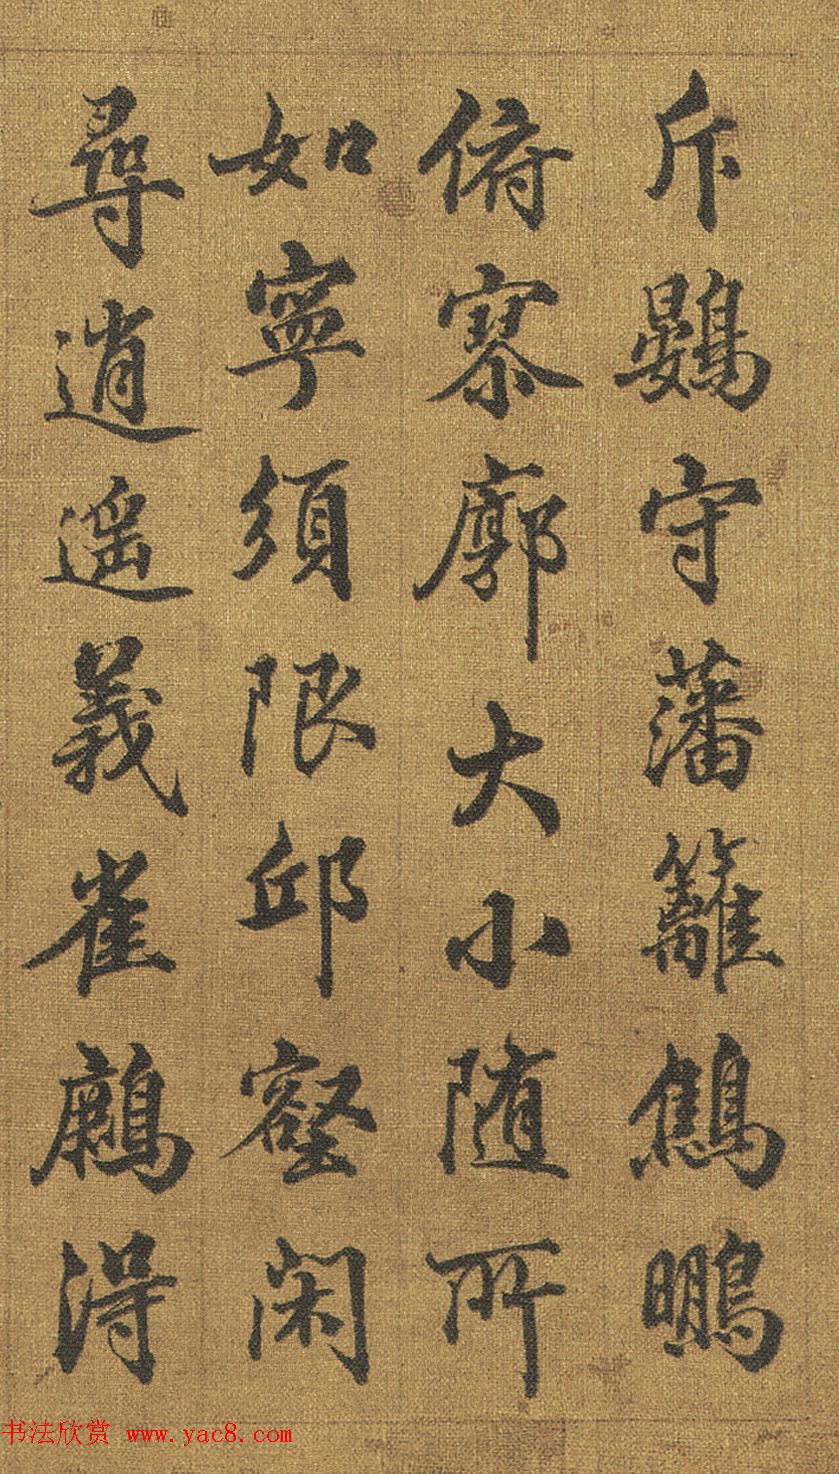 斥鷃守藩籬鷦鵬
俯寥廓大小随所
如寧須限邱壑閑
尋逍遥義雀得
书法欣赏 www.yac8.com